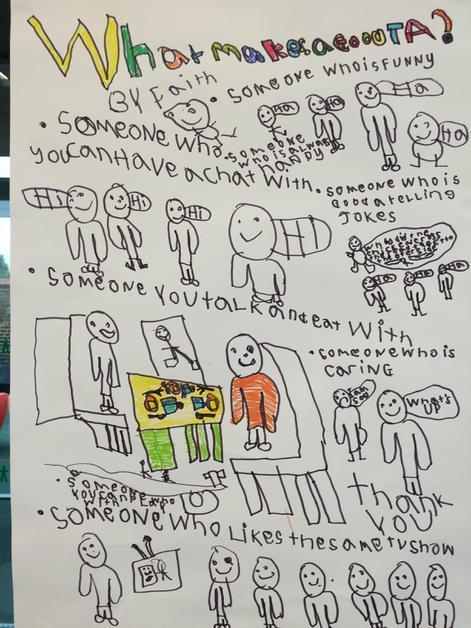 What makes a goooTA?
By Faith
• Someone who is funny
Ha
Ha
Ha
Ha
• Someone who
you can Have a chat with
• Someone
who is always
happy
Hi
Hi
Hi
Hi
• Someone who is
good a telling
jokes
• Someone you talk and eat with
• Someone who is
caring
What's
up
thank
you
• Someone
• Someone who likes the same tv show